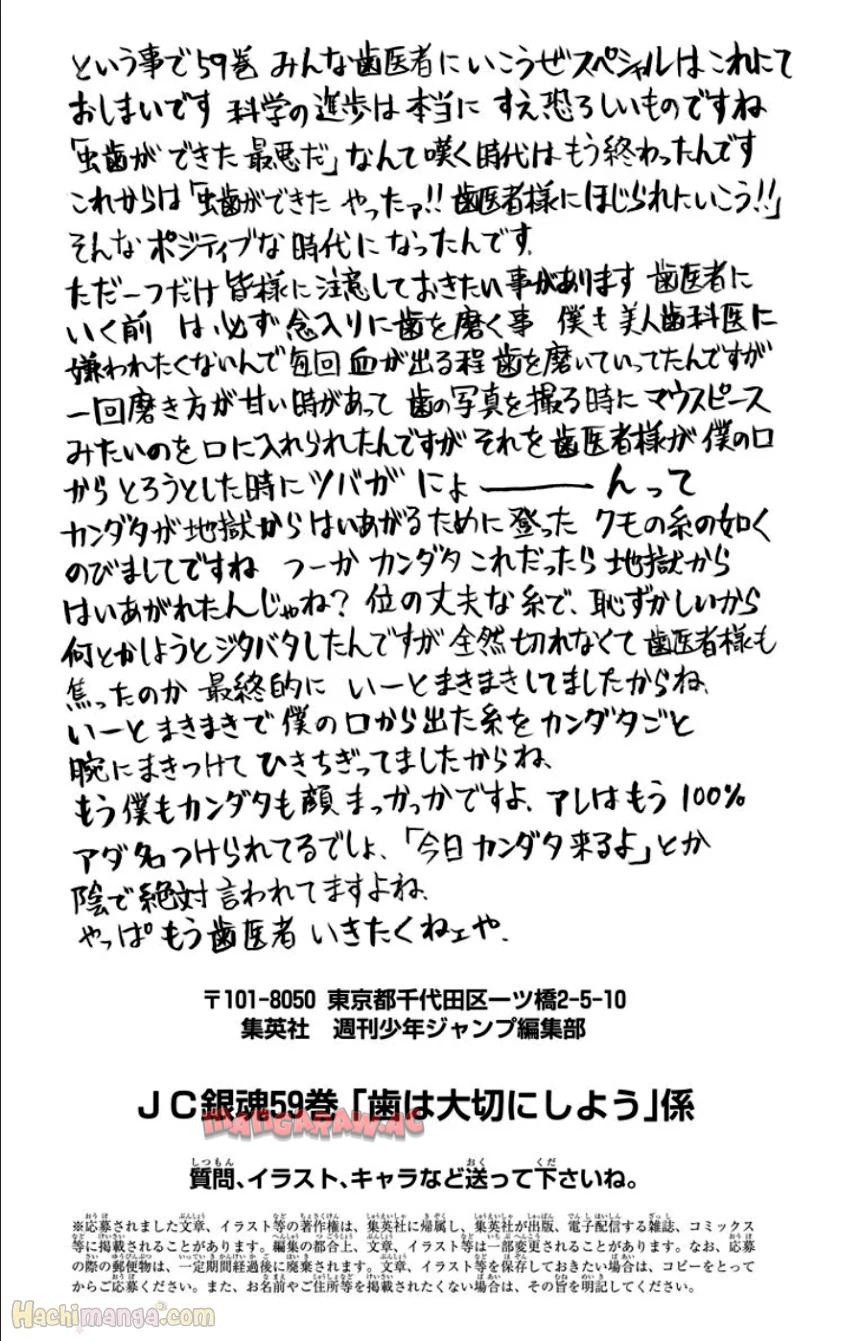 という事で59巻 みんな歯医者にいこうぜスペシャルはこれにて
おしまいです 科学の進歩は本当に すえ恐ろしいものですね
「虫歯が できた 最悪だ」なんて嘆く時代はもう終わったんです
これからは「虫歯ができた やったァ!! 歯医者様にほじられにいこう!!」
そんな ポジティブな時代になったんです。
ただ一つだけ 皆様に注意しておきたい事があります 歯医者に
いく前 は 必ず 念入りに歯を磨く事 僕も 美人歯科医に
嫌われたくないんで毎回 血が出る程 歯を磨いていってたんですが
一回磨き方が甘い時があって 歯の写真を撮る時にマウスピース
みたいのを口に入れられたんですが それを 歯医者様が 僕の口
から とろうとした時に ツバがにょ―――んって
カンダタが地獄からはいあがるために登った クモの糸の如く
のびましてですね つーか カンダタ これだったら 地獄から
はいあがれたんじゃね? 位の丈夫な糸で、恥ずかしいから
何とかしようとジタバタしたんですが 全然切れなくて 歯医者様も
焦ったのか 最終的に いーとまきまきしてましたからね、
いーとまきまきで 僕の口から出た糸を カンダタごと
腕にまきつけて ひきちぎってましたからね、
もう僕もカンダタも顔まっかっかですよ、アレはもう 100%
アダ名つけられてるでしょ、「今日 カンダタ 来るよ」とか
陰で絶対言われてますよね、
やっぱ もう 歯医者 いきたくねェや.
〒101-8050 東京都千代田区一ツ橋2-5-10
集英社 週刊少年ジャンプ編集部
JC銀魂59巻「歯は大切にしよう」係
MANGARAW.AC
質問、イラスト、キャラなど送って下さいね。
※応募されました文章、イラスト等の著作権は、集英社に帰属し、集英社が出版、電子配信する雑誌、コミックス
等に掲載されることがあります。編集の都合上、文章、イラスト等は一部変更されることがあります。なお、応募
の際の郵便物は、一定期間経過後に廃棄されます。文章、イラスト等を保存しておきたい場合は、コピーをとって
からご応募ください。また、お名前やご住所等を掲載されたくない場合は、その旨を明記してください。
Hachimanga.com